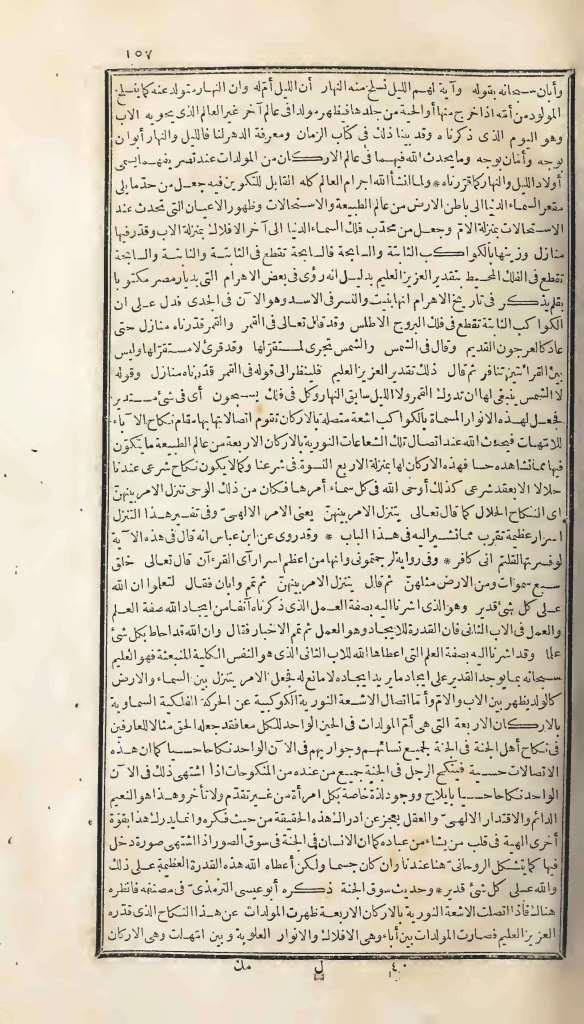 ١٥٧
وأبان سبحانه بقوله وآية لهم الليل نسلخ منه النهار أن الليل أم له وان النهار متولد عنه كما ينسلخ
المولود من أمّه اذا خرج منها أو الحية من جلدها فيظهر مولدا فى عالم آخر غير العالم الذى يحويه الاب
وهو اليوم الذى ذكرناه وقد بينا ذلك فى كتاب الزمان ومعرفة الدهر لنا فالليل والنهار أبوان
بوجه وأمّان بوجه وما يحدث الله فيهما فى عالم الاركان من المولدات عند تصريفهما يسمى
أولاد الليل والنهار كما قررناه * ولما أنشأ الله اجرام العالم كله القابل للتكوين فيه جعل من حدّ ما يلى
مقعر السماء الدنيا الى باطن الارض من عالم الطبيعة والاستحالات وظهور الاعيان التى تحدث عند
الاستحالات بمنزلة الامّ وجعل من محدّب فلك السماء الدنيا الى آخر الافلاك بمنزلة الاب وقدّر فيها
منازل وزينها بالكواكب الثابتة والسابحة فالسابحة تقطع فى الثابتة والثابتة والسابحة
تقطع فى الفلك المحيط بتقدير العزيز العليم بدليل انه رؤى فى بعض الاهرام التى بديار مصر مكتوبا
بقلم يذكر فى تاريخ الاهرام انها بنيت والنسر فى الاسد وهو الآن فى الجدى فدل على ان
الكواكب الثابتة تقطع فى فلك البروج الاطلس وقد قابل تعالى فى القمر والقمر قدّرناه منازل حتى
عاد كالعرجون القديم وقال فى الشمس والشمس تجرى لمستقرّ لها وقد قرئ لا مستقرّ لها وليس
بين القراءتين تنافر ثم قال ذلك تقدير العزيز العليم فلينظر الى قوله فى القمر قدّرناه منازل وقوله
لا الشمس ينبغى لها ان تدرك القمر ولا الليل سابق النهار وكل فى فلك يسبحون أى فى شئ مستدير
فجعل لهذه الانوار المسماة بالكواكب اشعة متصلة بالاركان تقوم اتصالاتها بها مقام نكاح الآباء
للامّهات فيحدث الله عند اتصال تلك الشعاعات النورية بالاركان الاربعة من عالم الطبيعة ما يتكوّن
فيها مما نشاهده حسا فهذه الاركان لها بمنزلة الاربع النسوة فى شرعنا وكما لا يكون نكاح شرعى عندنا
حلالا الا بعقد شرعى كذلك أوحى الله فى كل سماء أمرها فكان من ذلك الوحى تنزل الامر بينهنّ
اى النكاح الحلال كما قال تعالى يتنزل الامر بينهنّ يعنى الامر الالهىّ وفى تفسير هذا التنزل
اسرار عظيمة تقرب مما نشير اليه فى هذا الباب * وقد روى عن ابن عباس انه قال فى هذه الآية
لو فسرتها لقلتم انى كافر * وفى رواية لرجمتمونى وانها من اعظم اسرار آى القرءآن قال تعالى خلق
سبع سموات ومن الارض مثلهنّ ثم قال يتنزل الامر بينهنّ ثم تمم وابان فقال لتعلموا ان الله
على كل شئ قدير وهو الذى اشرنا اليه بصفة العمل الذى ذكرناه آنفا من ايجاد الله صفة العلم
والعمل فى الاب الثانى فان القدرة للايجاد وهو العمل ثم تمم الاخبار فقال وان الله قد احاط بكل شئ
علما وقد اشرنا اليه بصفة العلم التى اعطاها الله للاب الثانى الذى هو النفس الكلية المنبعثة فهو العليم
سبحانه بما يوجد القدير على ايجاد ما يريد ايجاده لا مانع له فجعل الامر يتنزل بين السماء والارض
كالولد يظهر بين الاب والامّ وأمّا اتصال الاشعة النورية الكوكبية عن الحركة الفلكية السماوية
بالاركان الاربعة التى هى أمّ المولدات فى الحين الواحد للكل معا فقد جعله الحق مثالا للعارفين
فى نكاح أهل الجنة فى الجنة لجميع نسائهم وجواريهم فى الآن الواحد نكاحا حسيا كما ان هذه
الاتصالات حسية فينكح الرجل فى الجنة جميع من عنده من المنكوحات اذا اشتهى ذلك فى الآن
الواحد نكاحا حسيا بايلاج ووجود لذة خاصة بكل امرأة من غير تقدّم ولا تأخر وهذا هو النعيم
الدائم والاقتدار الالهىّ والعقل يعجز عن ادراك هذه الحقيقة من حيث فكره وانما يدرك هذا بقوّة
أخرى الهية فى قلب من يشاء من عباده كما ان الانسان فى الجنة فى سوق الصور اذا اشتهى صورة دخل
فيها كما يتشكل الروحانىّ هنا عندنا وان كان جسما ولكن أعطاه الله هذه القدرة العظيمة على ذلك
والله على كل شئ قدير * وحديث سوق الجنة ذكره أبو عيسى الترمذىّ فى مصنفه فانظره
هناك فأذا اتصلت الاشعة النورية بالاركان الاربعة ظهرت المولدات عن هذا النكاح الذى قدّره
العزيز العليم فصارت المولدات بين أباء وهى الافلاك والانوار العلوية وبين امّهات وهى الاركان
٤٠ ل مك